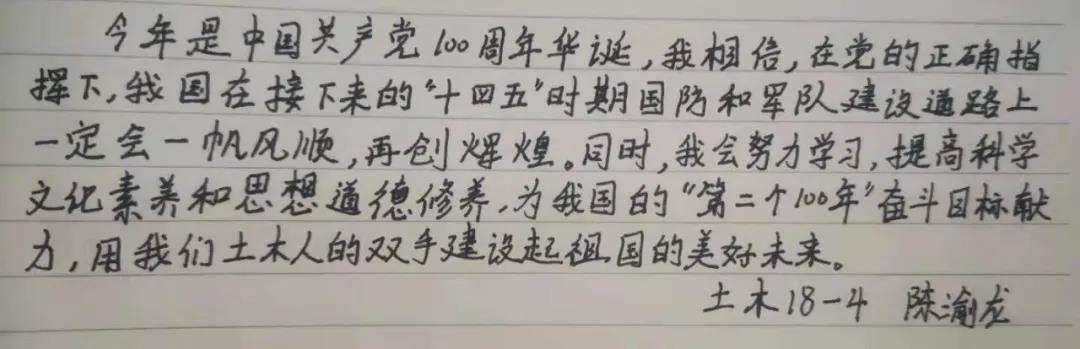 今年是中国共产党100周年华诞，我相信，在党的正确指
挥下，我国在接下来的“十四五”时期国防和军队建设道路上
一定会一帆风顺，再创辉煌。同时，我会努力学习，提高科学
文化素养和思想道德修养，为我国的“第二个100年”奋斗目标献
力，用我们土木人的双手建设起祖国的美好未来。
土木18-4 陈渝龙